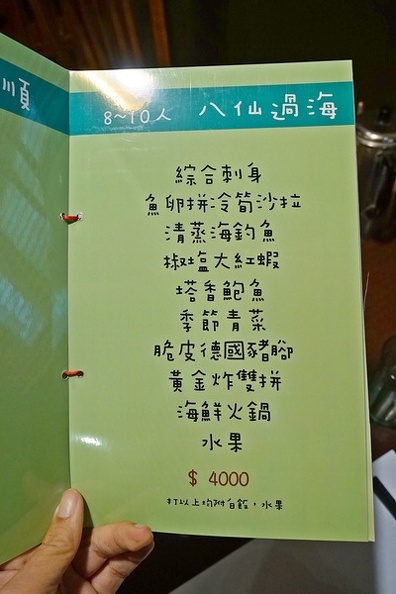 順
8~10人 八仙過海
綜合刺身
魚卵拼冷筍沙拉
清蒸海釣魚
椒塩大紅蝦
塔香鮑魚
季節青菜
脆皮德國豬腳
黃金炸雙拼
海鮮火鍋
水果
$ 4000
以上均附白飯，水果